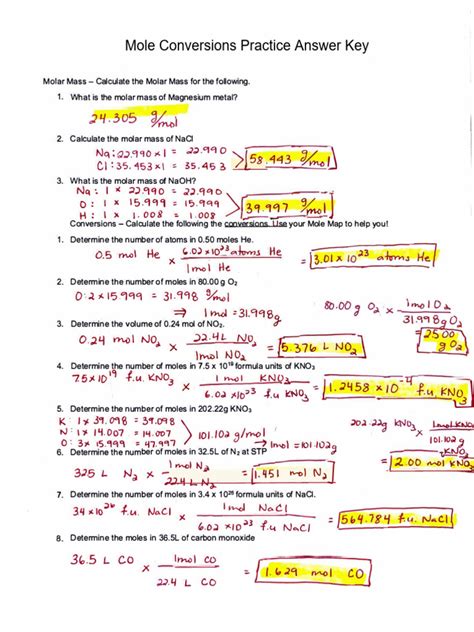 Mole Conversions Practice Answer Key
Molar Mass – Calculate the Molar Mass for the following.
1. What is the molar mass of Magnesium metal?
24.305 g/mol
2. Calculate the molar mass of NaCl
Na: 22.990 x 1 = 22.990
Cl: 35.453 x 1 = 35.453
58.443 g/mol
3. What is the molar mass of NaOH?
Na: 1 x 22.990 = 22.990
O: 1 x 15.999 = 15.999
H: 1 x 1.008 = 1.008
39.997 g/mol
Conversions – Calculate the following the conversions. Use your Mole Map to help you!
1. Determine the number of atoms in 0.50 moles He.
0.5 mol He x 6.02 x 10²³ atoms He = 3.01 x 10²³ atoms He
1 mol He
2. Determine the number of moles in 80.00 g O₂
O: 2 x 15.999 = 31.998 g/mol
→ 1mol = 31.998g
80.00 g O₂ x 1mol O₂
31.998g O₂
= 2.500
g O₂
3. Determine the volume of 0.24 mol of NO₂.
0.24 mol NO₂ x 22.4L NO₂ = 5.376 L NO₂
1mol NO₂
4. Determine the number of moles in 7.5 x 10¹⁹ formula units of KNO₃
7.5 x 10¹⁹ f.u. KNO₃ x 1 mol KNO₃ = 1.2458 x 10⁻⁴ f.u. KNO₃
6.02 x 10²³ f.u. KNO₃
5. Determine the number of moles in 202.22g KNO₃
K: 1 x 39.098 = 39.098
N: 1 x 14.007 = 14.007
O: 3 x 15.999 = 47.997
101.102 g/mol
→ 1mol = 101.102g
202.22g KNO₃ x 1mol KNO₃
101.102g
KNO₃
= 2.00 mol KNO₃
6. Determine the number of moles in 32.5L of N₂ at STP
32.5 L N₂ x 1mol N₂ = 1.451 mol N₂
22.4L N₂
7. Determine the number of moles in 3.4 x 10²⁶ formula units of NaCl.
3.4 x 10²⁶ f.u. NaCl x 1 mol NaCl = 564.784 f.u. NaCl
6.02 x 10²³ f.u. NaCl
8. Determine the moles in 36.5L of carbon monoxide
36.5 L CO x 1mol CO = 1.629 mol CO
22.4 L CO